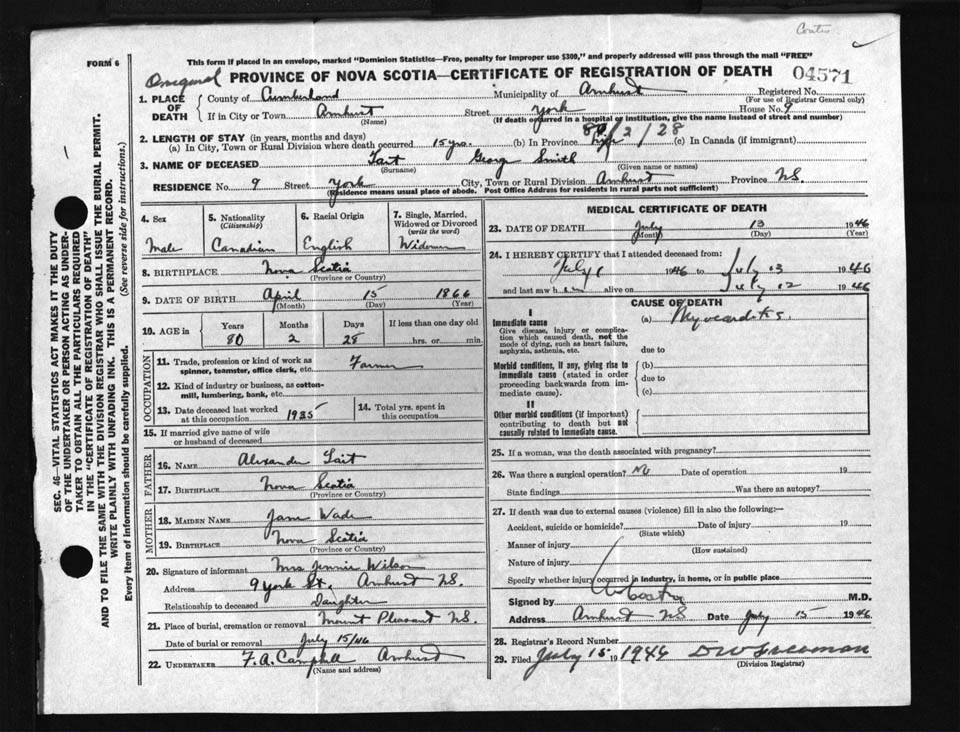 Coates
FORM 6
This form if placed in an envelope, marked "Dominion Statistics—Free, penalty for improper use $300," and properly addressed will pass through the mail "FREE"
Original PROVINCE OF NOVA SCOTIA—CERTIFICATE OF REGISTRATION OF DEATH 04571
1. PLACE OF DEATH County of Cumberland Municipality of Amherst Registered No.
(For use of Registrar General only)
If in City or Town Amherst Street York House No. 9
(Name) (If death occurred in a hospital or institution, give the name instead of street and number)
2. LENGTH OF STAY (in years, months and days) 80/2/28
(a) In City, Town or Rural Division where death occurred 15 yrs. (b) In Province life (c) In Canada (if immigrant)
3. NAME OF DECEASED Tait George Smith
(Surname) (Given name or names)
RESIDENCE No. 9 Street York City, Town or Rural Division Amherst Province N.S.
(Residence means usual place of abode. Post Office Address for residents in rural parts not sufficient)
4. Sex Male
5. Nationality (Citizenship) Canadian
6. Racial Origin English
7. Single, Married, Widowed or Divorced (write the word) Widower
8. BIRTHPLACE Nova Scotia
(Province or Country)
9. DATE OF BIRTH April 15 1866
(Month) (Day) (Year)
10. AGE in Years Months Days If less than one day old
80 2 28 hrs. or min.
OCCUPATION
11. Trade, profession or kind of work as spinner, teamster, office clerk, etc. Farmer
12. Kind of industry or business, as cotton-mill, lumbering, bank, etc.
13. Date deceased last worked at this occupation 1935
14. Total yrs. spent in this occupation
15. If married give name of wife or husband of deceased
FATHER
16. NAME Alexander Tait
17. BIRTHPLACE Nova Scotia
(Province or Country)
MOTHER
18. MAIDEN NAME Jane Wade
19. BIRTHPLACE Nova Scotia
(Province or Country)
20. Signature of informant Mrs Jennie Wilson
Address 9 York St. Amherst N.S.
Relationship to deceased Daughter
21. Place of burial, cremation or removal Mount Pleasant N.S.
Date of burial or removal July 15/46
22. UNDERTAKER F. A. Campbell Amherst
(Name and address)
MEDICAL CERTIFICATE OF DEATH
23. DATE OF DEATH July 13 1946
(Month) (Day) (Year)
24. I HEREBY CERTIFY that I attended deceased from:
July 6 1946 to July 13 1946
and last saw h im alive on July 12 1946
CAUSE OF DEATH
I
Immediate cause
Give disease, injury or complication which caused death, not the mode of dying, such as heart failure, asphyxia, asthenia, etc.
(a) Myocarditis.
due to
Morbid conditions, if any, giving rise to immediate cause (stated in order proceeding backwards from immediate cause).
(b)
due to
(c)
II
Other morbid conditions (if important) contributing to death but not causally related to immediate cause.
25. If a woman, was the death associated with pregnancy?
26. Was there a surgical operation? No Date of operation 19
State findings Was there an autopsy?
27. If death was due to external causes (violence) fill in also the following:—
Accident, suicide or homicide? Date of injury 19
(State which)
Manner of injury
(How sustained)
Nature of injury
Specify whether injury occurred in industry, in home, or in public place
Signed by M.D.
Address Amherst NS Date July 15 1946
28. Registrar's Record Number
29. Filed July 15 19 1946 D W Freeman
(Division Registrar)
SEC. 46—VITAL STATISTICS ACT MAKES IT THE DUTY
OF THE UNDERTAKER OR PERSON ACTING AS UNDER-
TAKER TO OBTAIN ALL THE PARTICULARS REQUIRED
IN THE "CERTIFICATE OF REGISTRATION OF DEATH"
AND TO FILE THE SAME WITH THE DIVISION REGISTRAR WHO SHALL ISSUE THE BURIAL PERMIT.
WRITE PLAINLY WITH UNFADING INK. THIS IS A PERMANENT RECORD.
Every item of information should be carefully supplied. (See reverse side for instructions.)